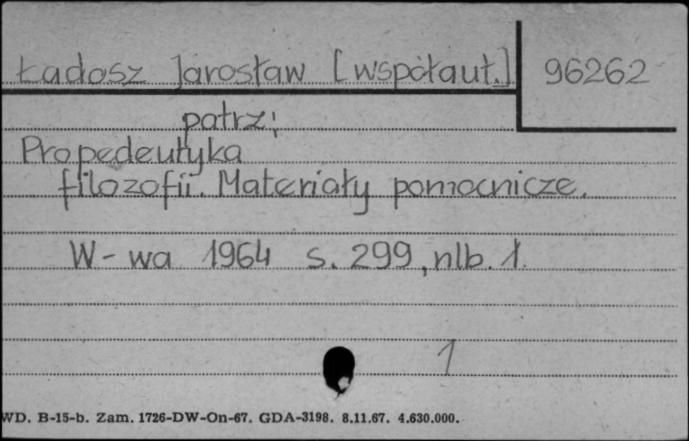 Ładosz Jarosław [współaut.] 96262
patrz:
Propedeutyka
filozofii. Materiały pomocnicze.
W-wa 1964 s. 299, nlb. 1.
1
WD. B-15-b. Zam. 1726-DW-On-67. GDA-3198. 8.11.67. 4.630.000.